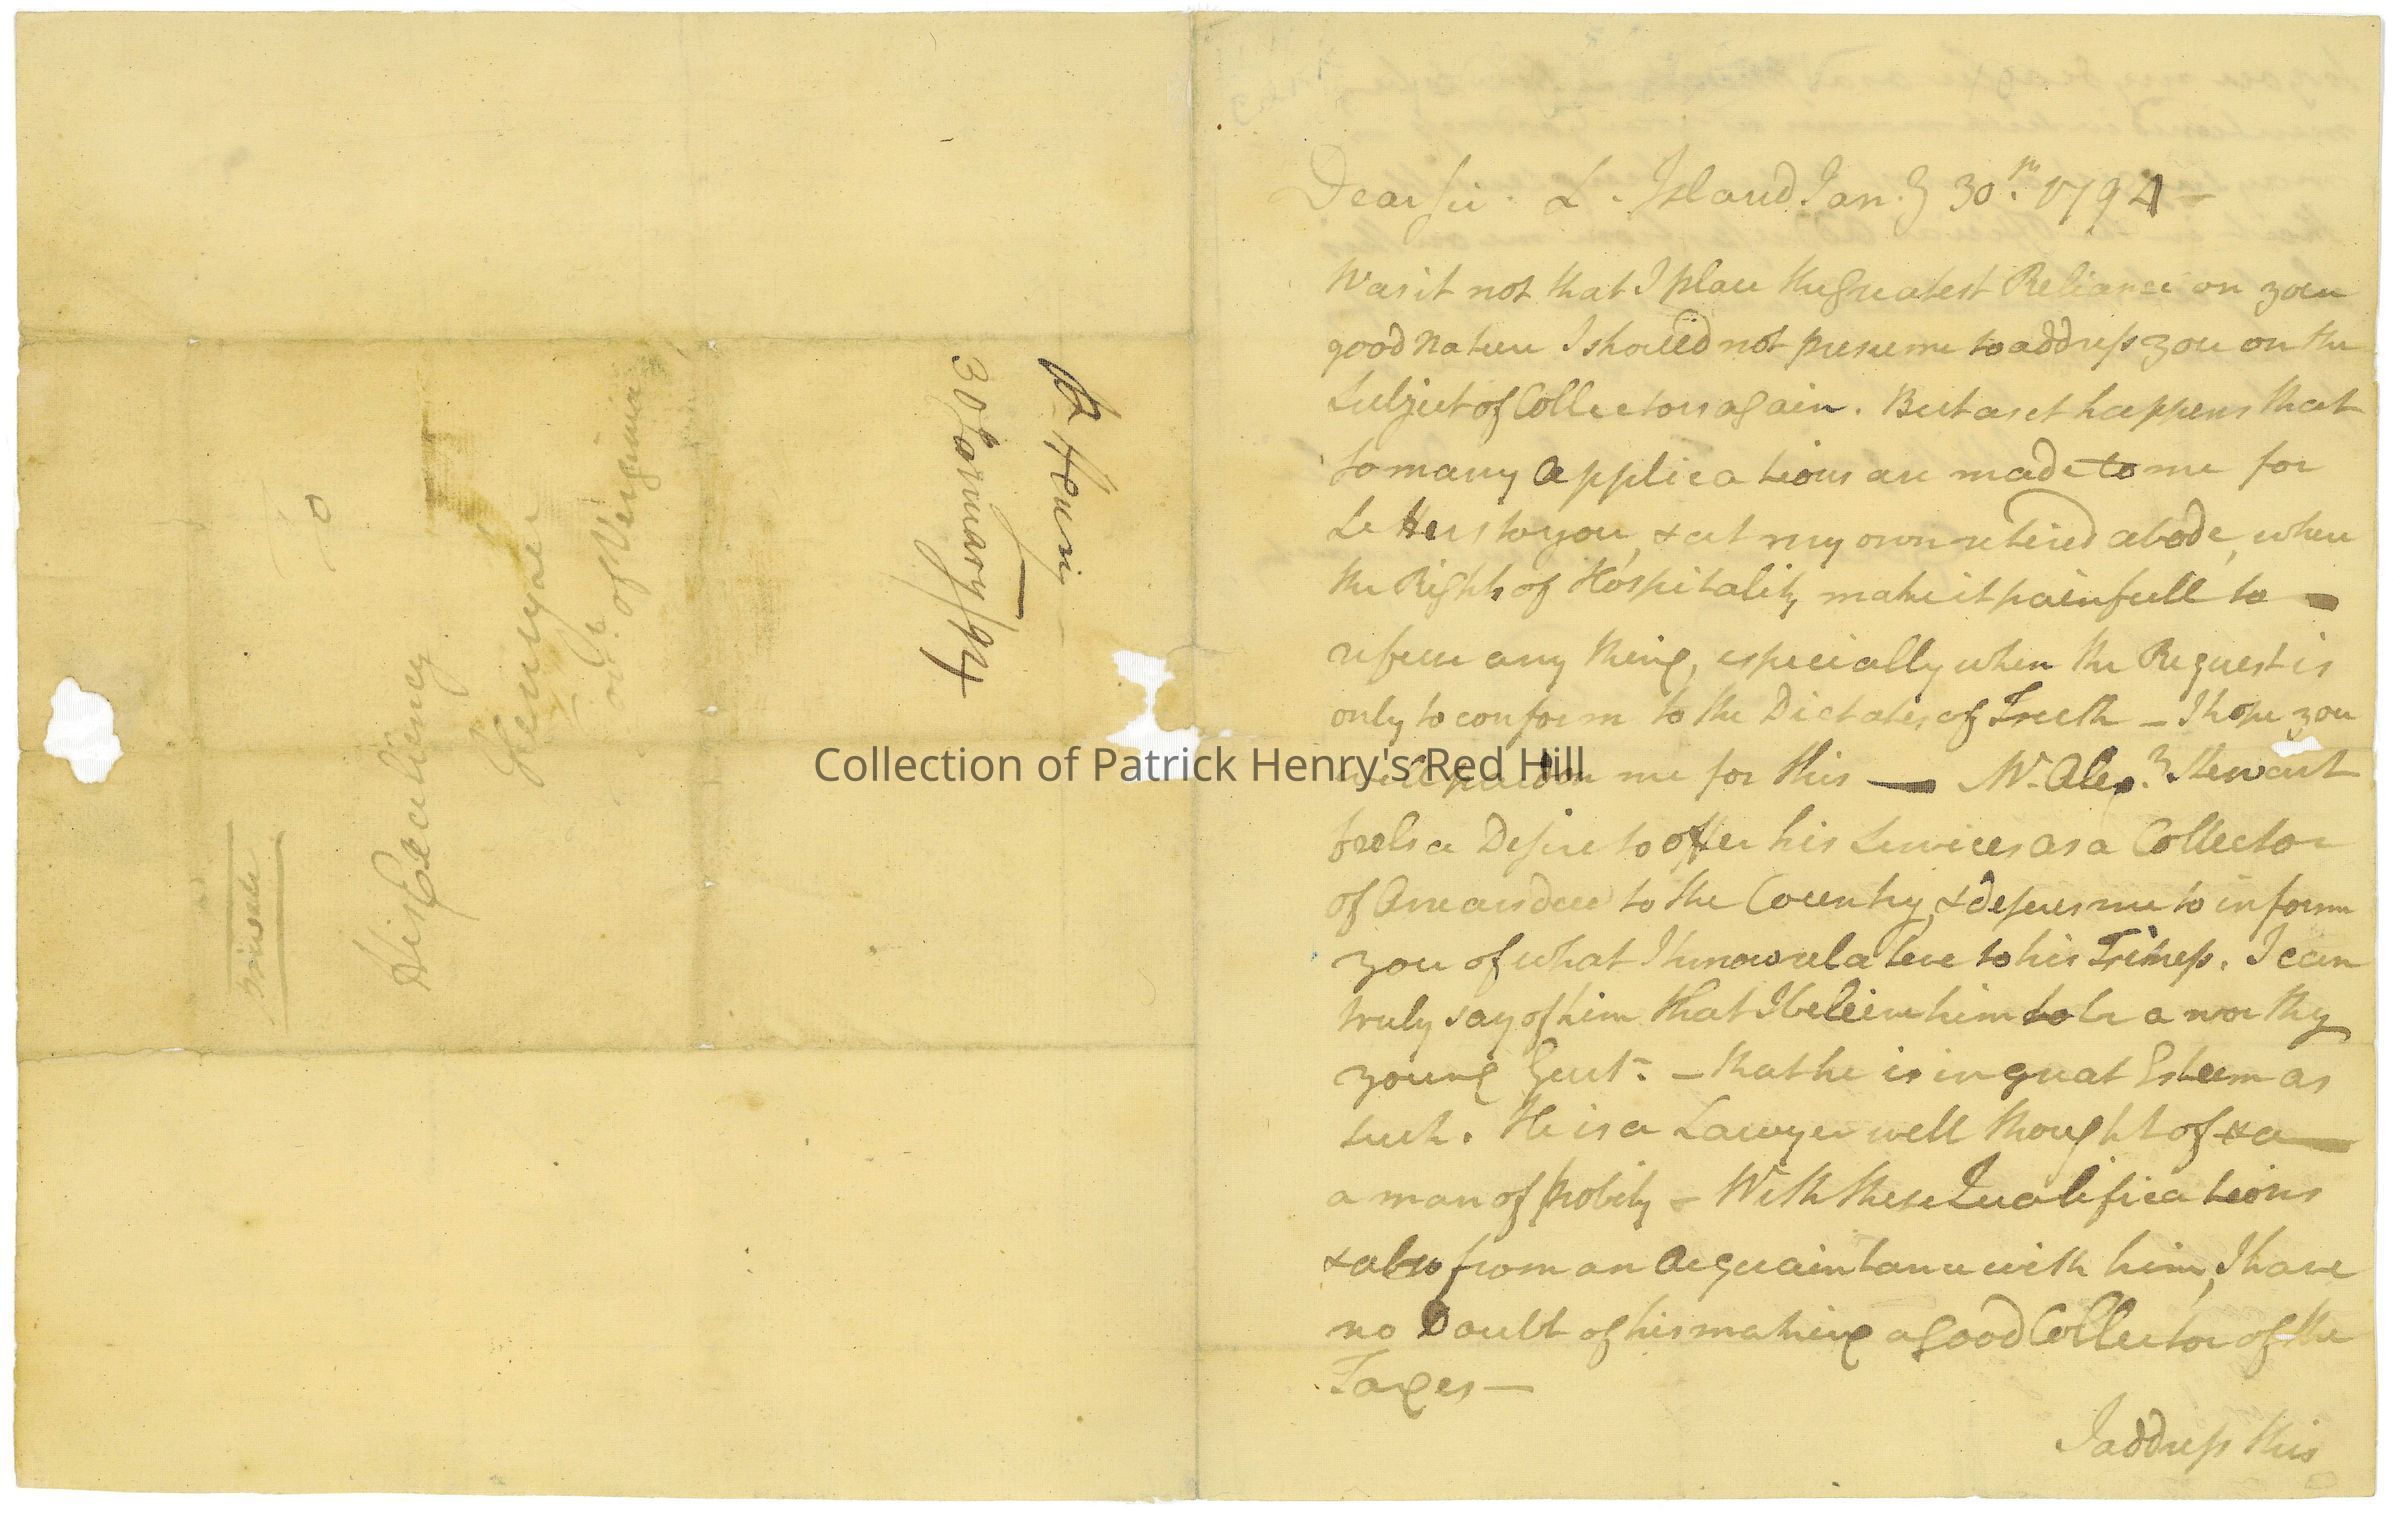 To
His Excellency
Henry Lee
Gov.r of Virginia
private
P. Henry
30 January/94
Collection of Patrick Henry's Red Hill
Dear Sir. L. Island Jan.y 30th. 1794 —
Was it not that I place the greatest Reliance on your
good nature I should not presume to address you on the
Subject of Collectors again. But as it happens that
so many Applications are made to me for
Letters to you, & at my own retired abode, when
the Rights of Hospitality make it painfull to —
refuse any thing, especially when the Request is
only to conform to the Dictates of Truth — I hope you
will pardon me for this — Mr. Alex.r Stewart
feels a Desire to offer his Services as a Collector
of Arrears due to the Country, & desires me to inform
you of what I know relative to his Fitness. I can
truly say of him that I beleive him to be a worthy
young Gent. — that he is in great Esteem as
such. He is a Lawyer well thought of & a —
a man of probity — With these Qualifications
& also from an Acquaintance with him, I have
no Doubt of his making a good Collector of the
Taxes —
I address this